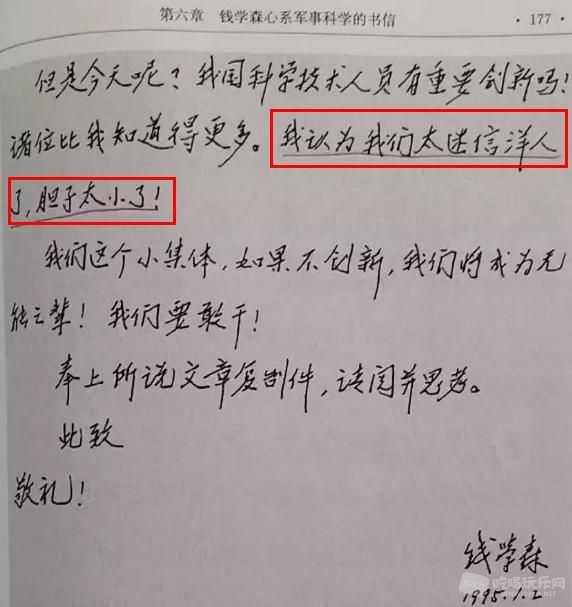 第六章 钱学森心系军事科学的书信 ·177·
但是今天呢？我国科学技术人员有重要创新吗！
诸位比我知道得更多。我认为我们太迷信洋人
了，胆子太小了！
我们这个小集体，如果不创新，我们将成为无
能之辈！我们要敢干！
奉上所说文章复制件，请阅并思考。
此致
敬礼！
钱学森
1995.1.2
吃喝玩乐网